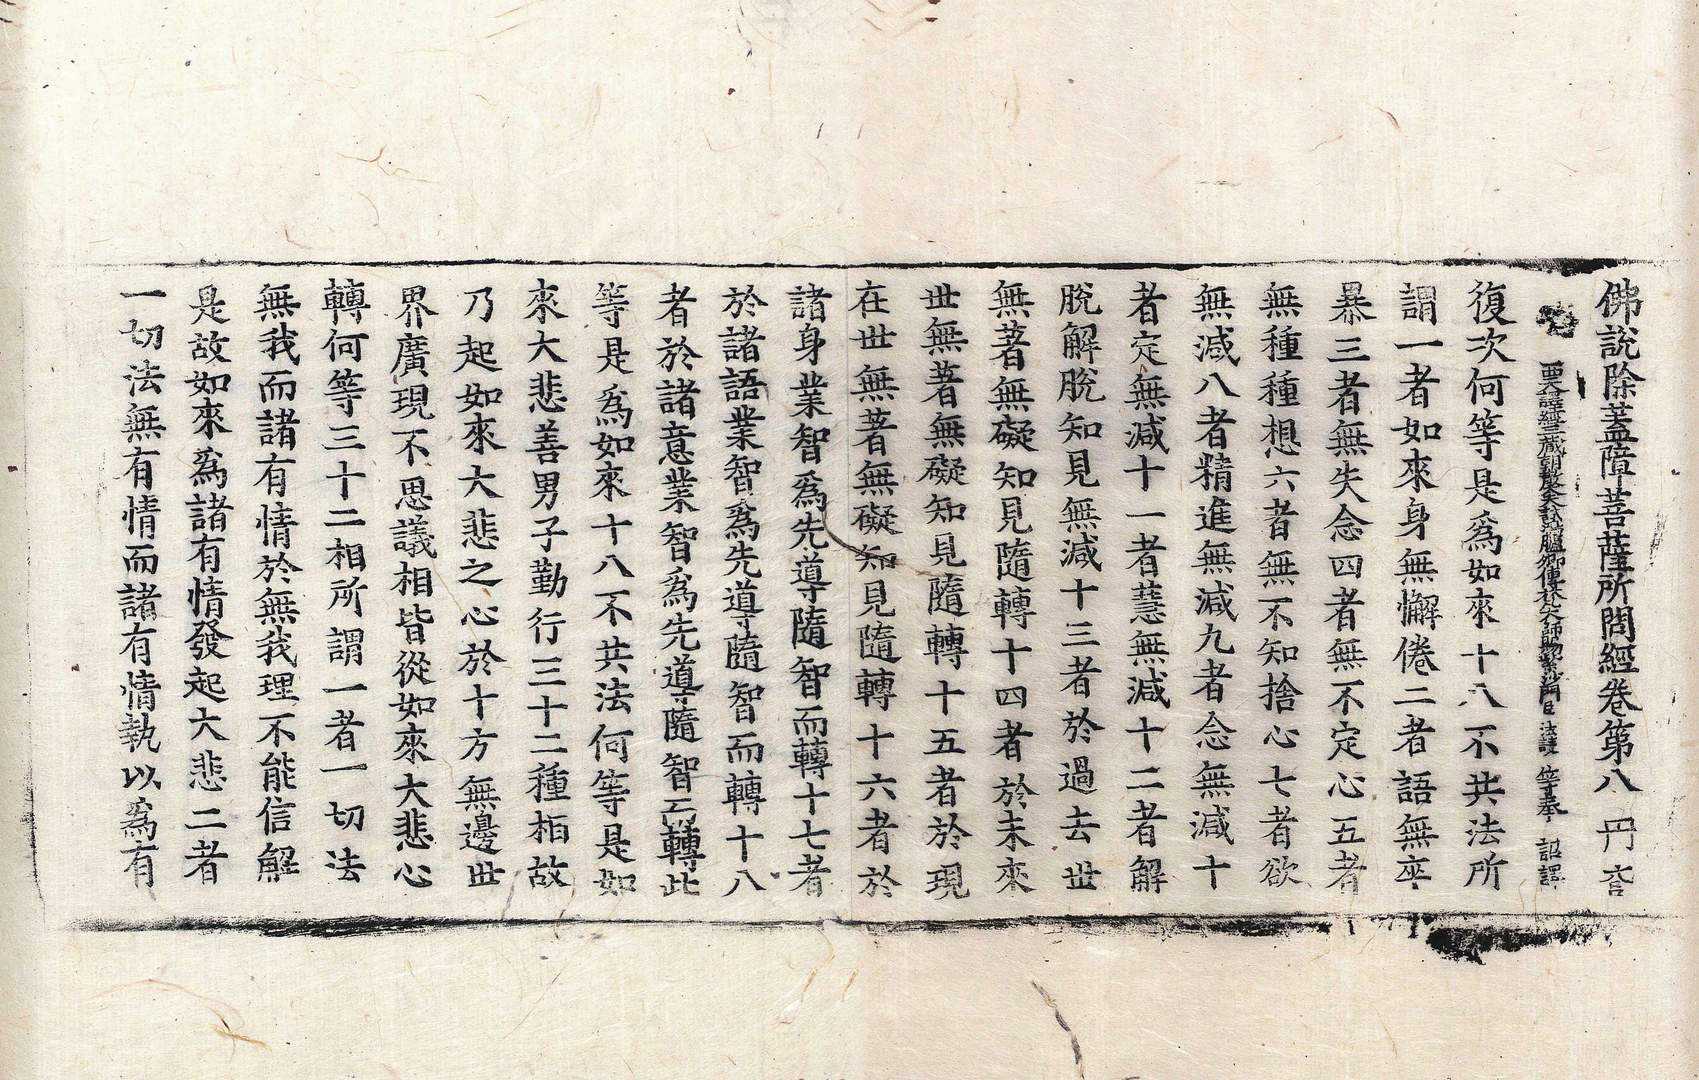 佛說除蓋障菩薩所問經卷第八 丹 呇
譯經三藏朝散大夫試鴻臚卿傳梵大師賜紫沙門臣法護等奉 詔譯
復次何等是爲如來十八不共法所
謂一者如來身無懈倦二者語無卒
暴三者無失念四者無不定心五者
無種種想六者無不知捨心七者欲
無減八者精進無減九者念無減十
者定無減十一者慧無減十二者解
脫解脫知見無減十三者於過去世
無著無礙知見隨轉十四者於未來
世無著無礙知見隨轉十五者於現
在世無著無礙知見隨轉十六者於
諸身業智爲先導隨智而轉十七者
於諸語業智爲先導隨智而轉十八
者於諸意業智爲先導隨智而轉此
等是爲如來十八不共法何等是如
來大悲善男子勤行三十二種相故
乃起如來大悲之心於十方無邊世
界廣現不思議相皆從如來大悲心
轉何等三十二相所謂一者一切法
無我而諸有情於無我理不能信解
是故如來爲諸有情發起大悲二者
一切法無有情而諸有情執以爲有